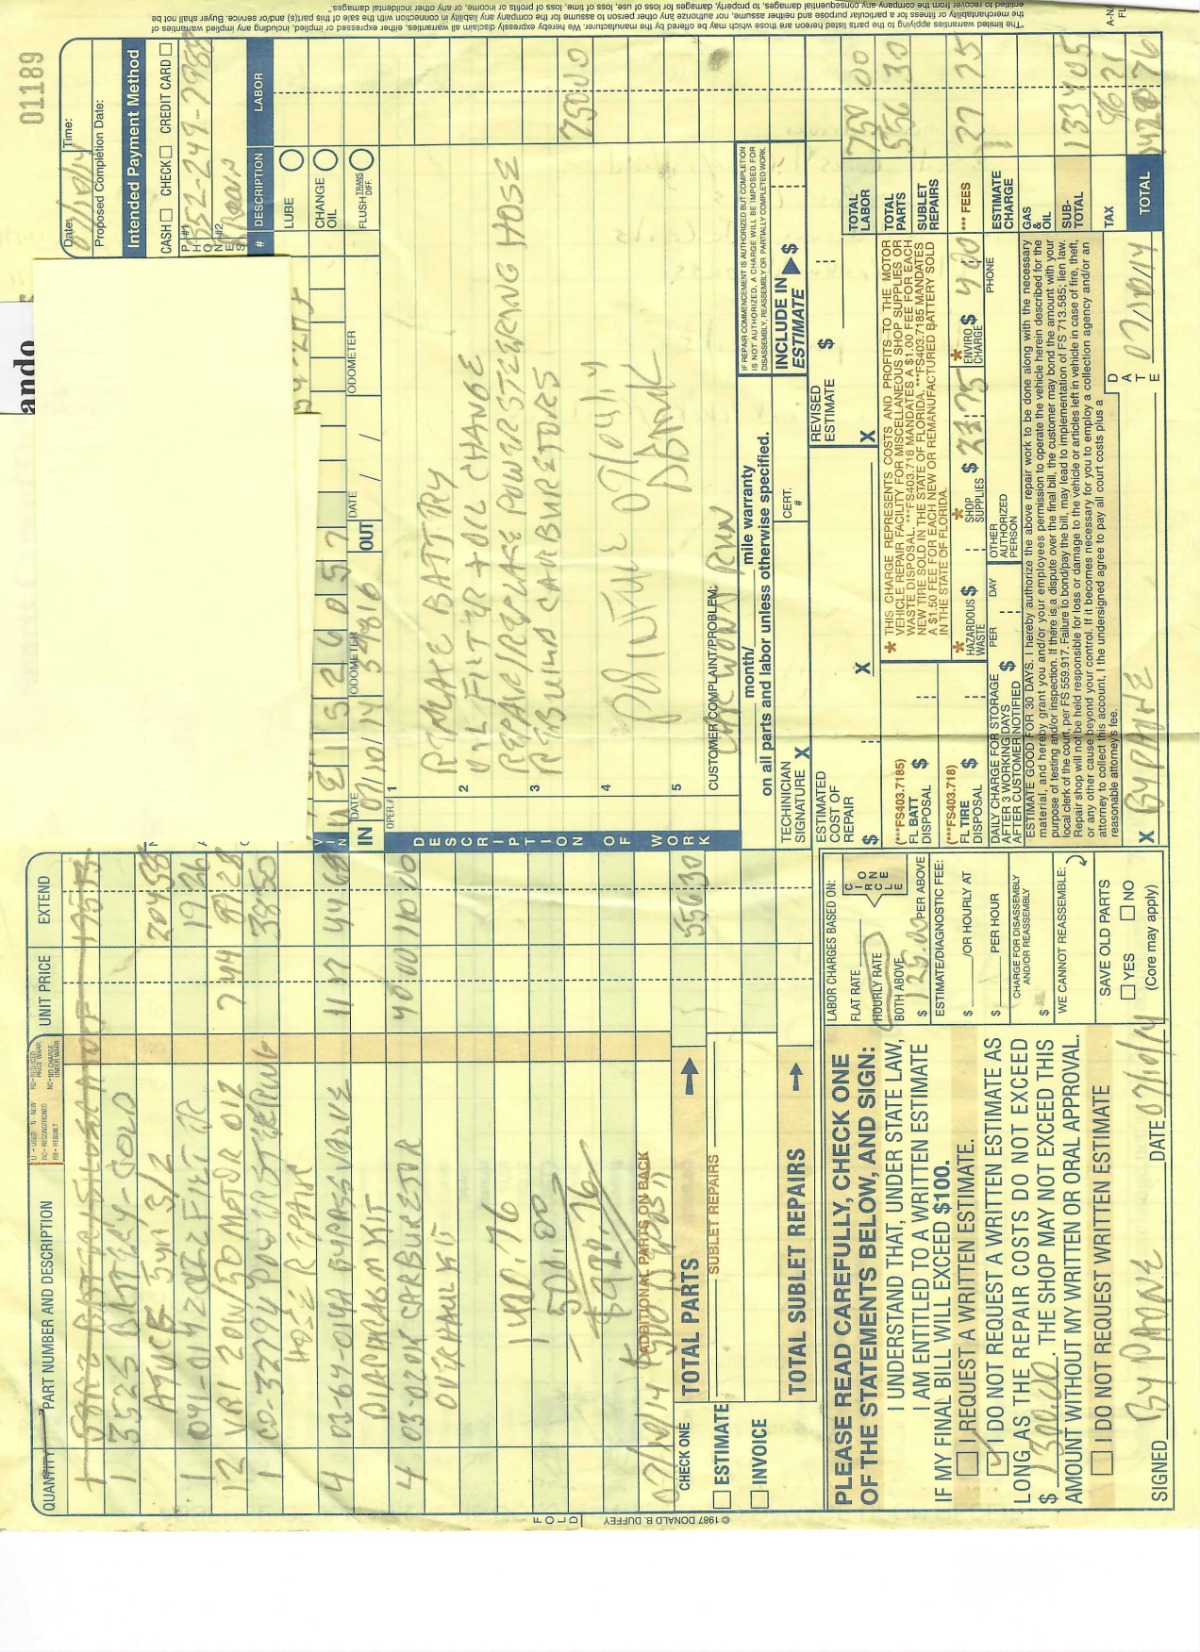 01189
QUANTITY PART NUMBER AND DESCRIPTION UNIT PRICE EXTEND
U - USED N - NEW
RC - RECONDITIONED
RB - REBUILT
1 3525 BATTERY-GOLD 204 55
12 VR1 20W/50 MOTOR OIL 7 44 89 28
1 CO-32774 POWER STEERING 38 50
HOSE REPAIR
4 03-64-014A BYPASS VALVE 11 17 44 68
DIAPHRAGM KIT
4 03-020K CARBURETOR 40 00
OVERHAUL KIT
1420.76
- 500.00
$920.76
ADDITIONAL PARTS ON BACK
CHECK ONE
ESTIMATE
INVOICE
TOTAL PARTS 556 30
SUBLET REPAIRS
TOTAL SUBLET REPAIRS
FOLD
© 1987 DONALD B. DUFFEY
PLEASE READ CAREFULLY, CHECK ONE
OF THE STATEMENTS BELOW, AND SIGN:
I UNDERSTAND THAT, UNDER STATE LAW,
I AM ENTITLED TO A WRITTEN ESTIMATE
IF MY FINAL BILL WILL EXCEED $100.
I REQUEST A WRITTEN ESTIMATE.
I DO NOT REQUEST A WRITTEN ESTIMATE AS
LONG AS THE REPAIR COSTS DO NOT EXCEED
$ 1300.00. THE SHOP MAY NOT EXCEED THIS
AMOUNT WITHOUT MY WRITTEN OR ORAL APPROVAL.
I DO NOT REQUEST WRITTEN ESTIMATE
SIGNED BY PHONE DATE 07/10/14
LABOR CHARGES BASED ON:
FLAT RATE
HOURLY RATE
BOTH ABOVE
CIRCLE ONE
$ 125.00 PER ABOVE
ESTIMATE/DIAGNOSTIC FEE:
$ /OR HOURLY AT
$ PER HOUR
CHARGE FOR DISASSEMBLY
AND/OR REASSEMBLY
$
WE CANNOT REASSEMBLE:
SAVE OLD PARTS
YES NO
(Core may apply)
ando
Date: 07/10/14 Time:
Proposed Completion Date:
Intended Payment Method
CASH CHECK CREDIT CARD
PHONE #1 352-249-7988
#2
# DESCRIPTION LABOR
LUBE
CHANGE OIL
FLUSH TRANS DIFF.
VIN
IN DATE 07/10/14 ODOMETER 39816 OUT DATE / / ODOMETER
OPER #
DESCRIPTION OF WORK
1 REPLACE BATTRY
2 OIL FILTER + OIL CHANGE
3 REPAIR/REPLACE POWER STEERING HOSE
REBUILD CARBURETORS 750 00
4
5
CUSTOMER COMPLAINT/PROBLEM:
CAR WON'T RUN
month/ mile warranty
on all parts and labor unless otherwise specified.
IF REPAIR COMMENCEMENT IS AUTHORIZED BUT COMPLETION
IS NOT AUTHORIZED, A CHARGE WILL BE IMPOSED FOR
DISASSEMBLY, REASSEMBLY OR PARTIALLY COMPLETED WORK.
TECHINICIAN SIGNATURE X CERT. #
INCLUDE IN ESTIMATE $
ESTIMATED COST OF REPAIR $ X
REVISED ESTIMATE $ X
(***FS403.7185)
FL BATT DISPOSAL $
(***FS403.718)
FL TIRE DISPOSAL $
* THIS CHARGE REPRESENTS COSTS AND PROFITS TO THE MOTOR
VEHICLE REPAIR FACILITY FOR MISCELLANEOUS SHOP SUPPLIES OR
WASTE DISPOSAL. ***FS403.718 MANDATES A $1.00 FEE FOR EACH
NEW TIRE SOLD IN THE STATE OF FLORIDA. ***FS403.7185 MANDATES
A $1.50 FEE FOR EACH NEW OR REMANUFACTURED BATTERY SOLD
IN THE STATE OF FLORIDA.
* HAZARDOUS WASTE $ * SHOP SUPPLIES $ 23.75 * ENVIRO CHARGE $ 4 00
DAILY CHARGE FOR STORAGE
AFTER 3 WORKING DAYS
AFTER CUSTOMER NOTIFIED $ PER DAY
OTHER AUTHORIZED PERSON PHONE
ESTIMATE GOOD FOR 30 DAYS. I hereby authorize the above repair work to be done along with the necessary
material, and hereby grant you and/or your employees permission to operate the vehicle herein described for the
purpose of testing and/or inspection. If there is a dispute over the final bill, the customer may bond the amount with your
local clerk of the court, per FS 559.917. Failure to bond/pay the bill, may lead to implementation of FS 713.585; lien law.
Repair shop will not be held responsible for loss or damage to the vehicle or articles left in vehicle in case of fire, theft,
or any other cause beyond your control. If it becomes necessary for you to employ a collection agency and/or an
attorney to collect this account, I the undersigned agree to pay all court costs plus a
reasonable attorney's fee.
X BY PHONE DATE 07/10/14
TOTAL LABOR 750 00
TOTAL PARTS 556 30
SUBLET REPAIRS
*** FEES 27 75
ESTIMATE CHARGE
GAS & OIL
SUB-TOTAL 1334 05
TAX 86 71
TOTAL 1420 76
"The limited warranties applying to the parts listed hereon are those which may be offered by the manufacturer. We hereby expressly disclaim all warranties, either expressed or implied, including any implied warranties of
the merchantability or fitness for a particular purpose and neither assume, nor authorize any other person to assume for the company any liability in connection with the sale of this part(s) and/or service. Buyer shall not be
entitled to recover from the company any consequential damages, to property, damages for loss of use, loss of time, loss of profits or income, or any other incidental damages."